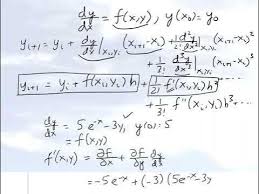 dy/dx = f(x,y), y(x₀) = y₀
yᵢ₊₁ = yᵢ + dy/dx | (xᵢ₊₁ - xᵢ) + 1/2! d²y/dx² | (xᵢ₊₁ - xᵢ)²
+ 1/3! d³y/dx³ | (xᵢ₊₁ - xᵢ)³
yᵢ₊₁ = yᵢ + f(xᵢ,yᵢ)h + 1/2! f'(xᵢ,yᵢ)h²
+ 1/3! f''(xᵢ,yᵢ)h³ ...
dy/dx = 5e⁻ˣ - 3y, y(0) = 5
= f(x,y)
f'(x,y) = ∂F/∂x + ∂F/∂y dy/dx
= -5e⁻ˣ + (-3)(5e⁻ˣ - 3y